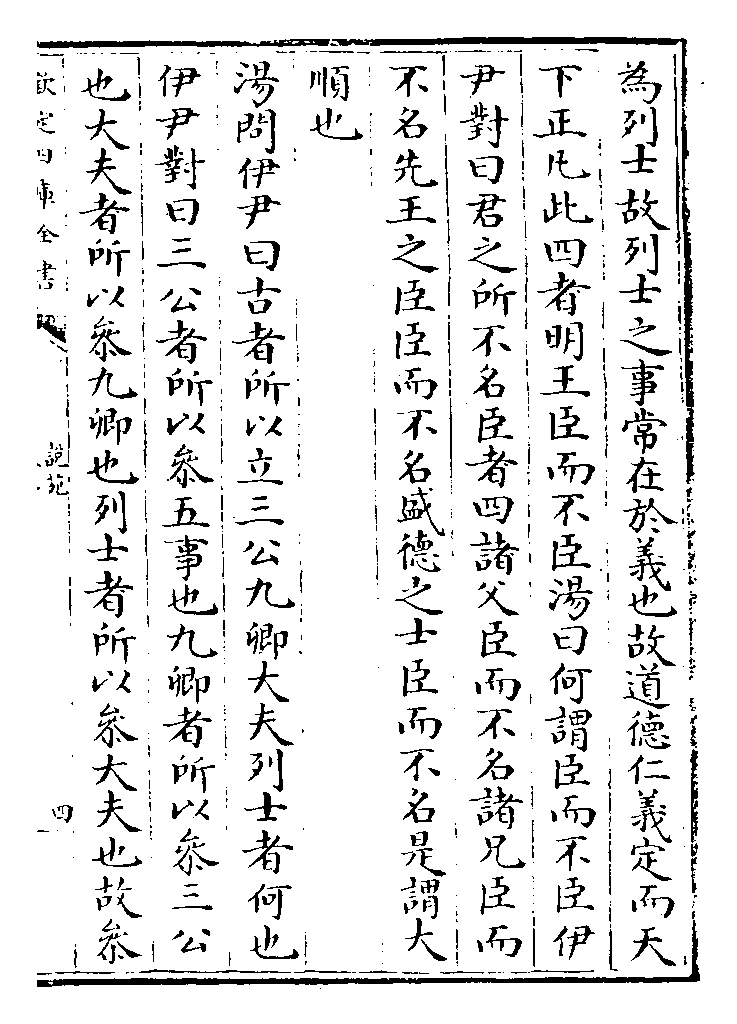 為列士故列士之事常在於義也故道德仁義定而天
下正凡此四者明王臣而不臣湯曰何謂臣而不臣伊
尹對曰君之所不名臣者四諸父臣而不名諸兄臣而
不名先王之臣臣而不名盛德之士臣而不名是謂大
順也
湯問伊尹曰古者所以立三公九卿大夫列士者何也
伊尹對曰三公者所以叅五事也九卿者所以叅三公
也大夫者所以叅九卿也列士者所以叅大夫也故叅
欽定四庫全書
說苑
四